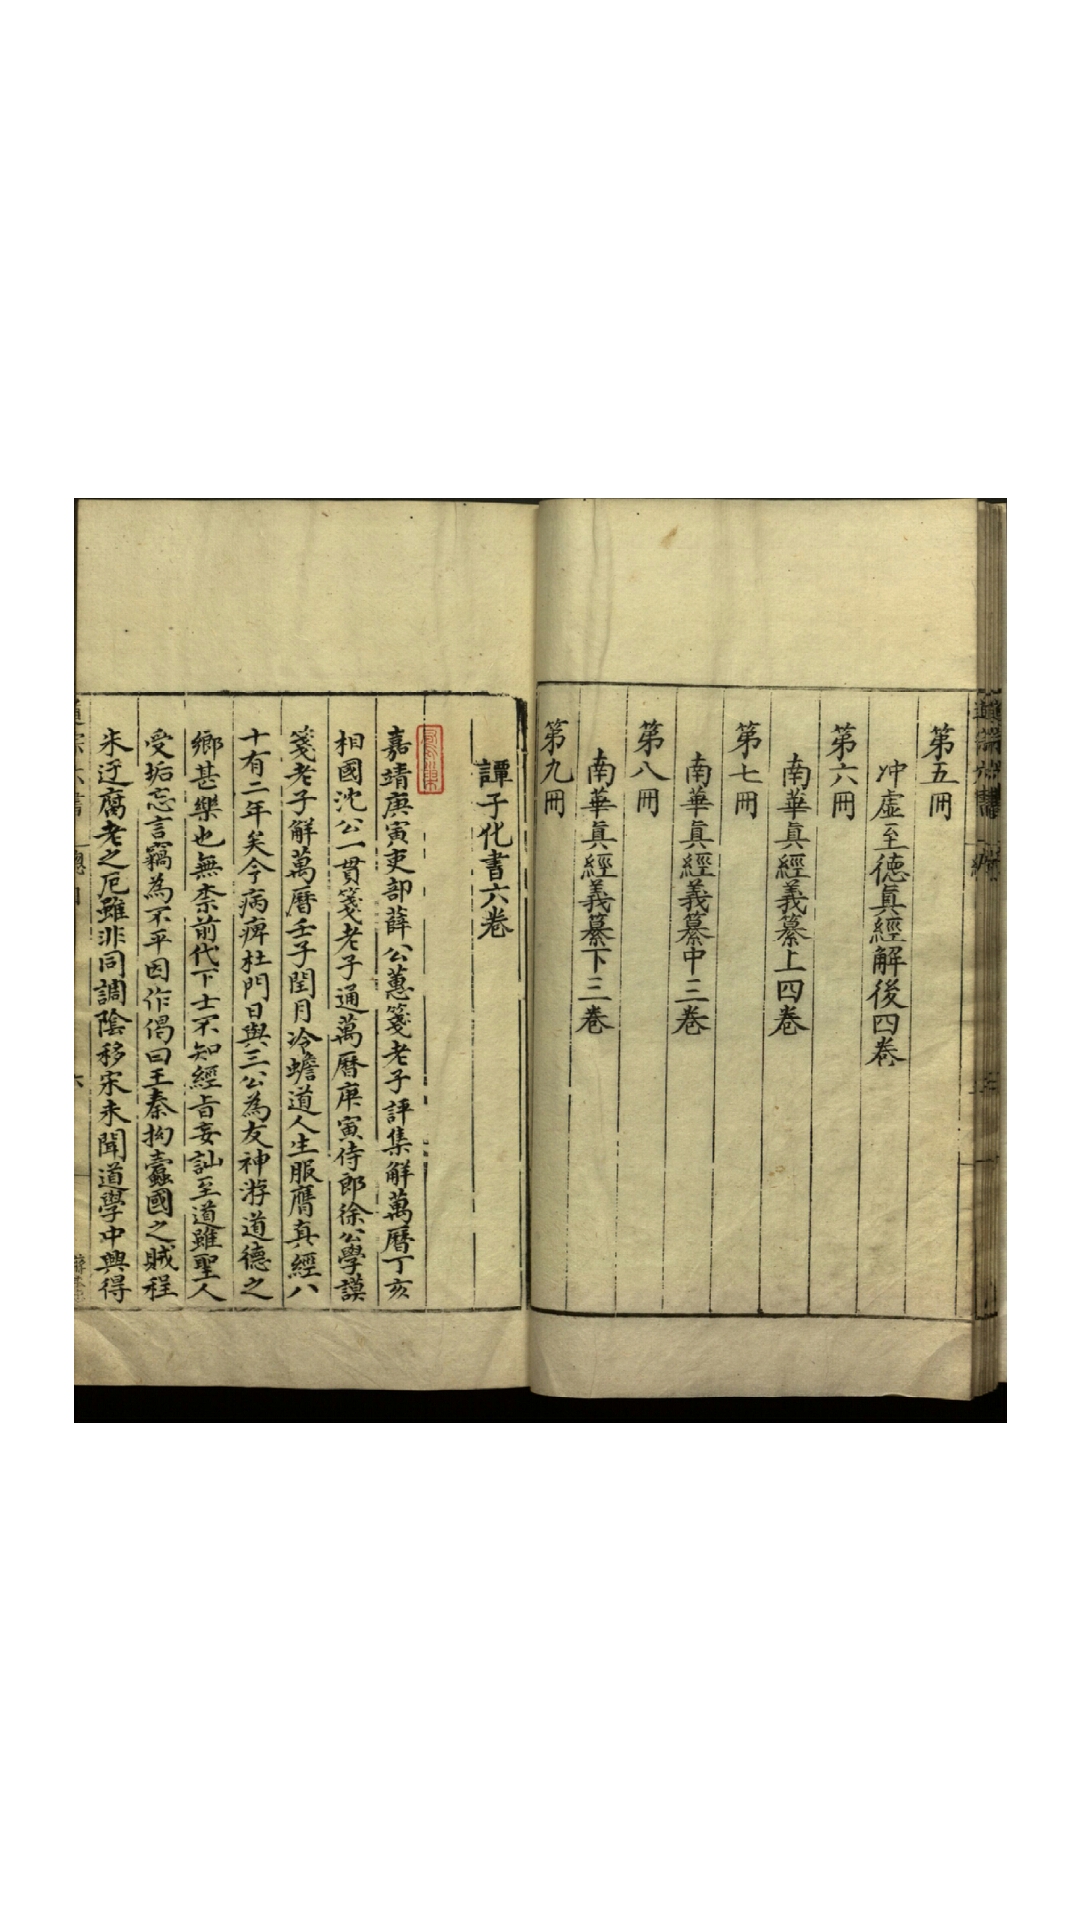 第五冊
冲虛至德眞經解後四卷
第六冊
南華眞經義纂上四卷
第七冊
南華眞經義纂中三卷
第八冊
南華眞經義纂下三卷
第九冊
譚子化書六卷
嘉靖庚寅吏部薛公蕙箋老子評集解萬曆丁亥
相國沈公一貫箋老子通萬曆庚寅侍郎徐公學謨
箋老子解萬曆壬子閏月冷蟾道人生服膺真經八
十有二年矣今病痺杜門日與三公為友神游道德之
鄉甚樂也無柰前代下士不知經旨妄訕至道雖聖人
受垢忘言竊為不平因作偈曰王秦拘蠹國之賊程
朱迂腐老之厄雖非同調陰移宋未聞道學中興得